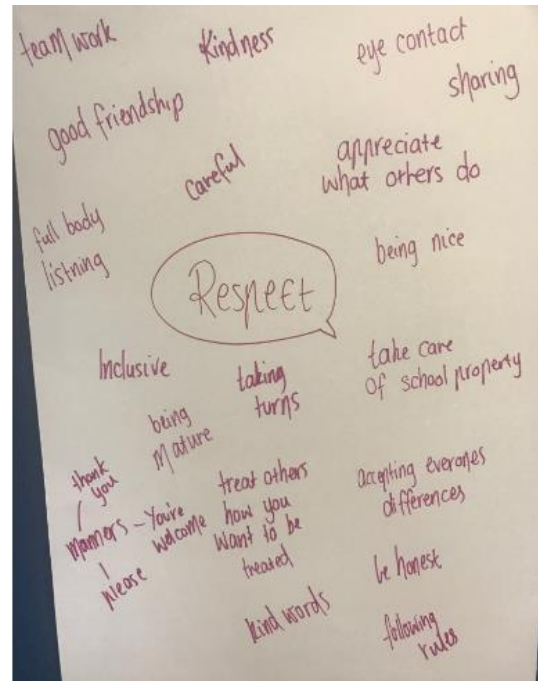 team work
Kindness
eye contact
sharing
good friendship
careful
appreciate
what others do
full body
listning
being nice
Respect
Inclusive
taking
turns
take care
of school property
being
mature
thank
you
manners - You're
welcome
please
treat others
how you
want to be
treated
accepting everones
differences
be honest
kind words
following
rules